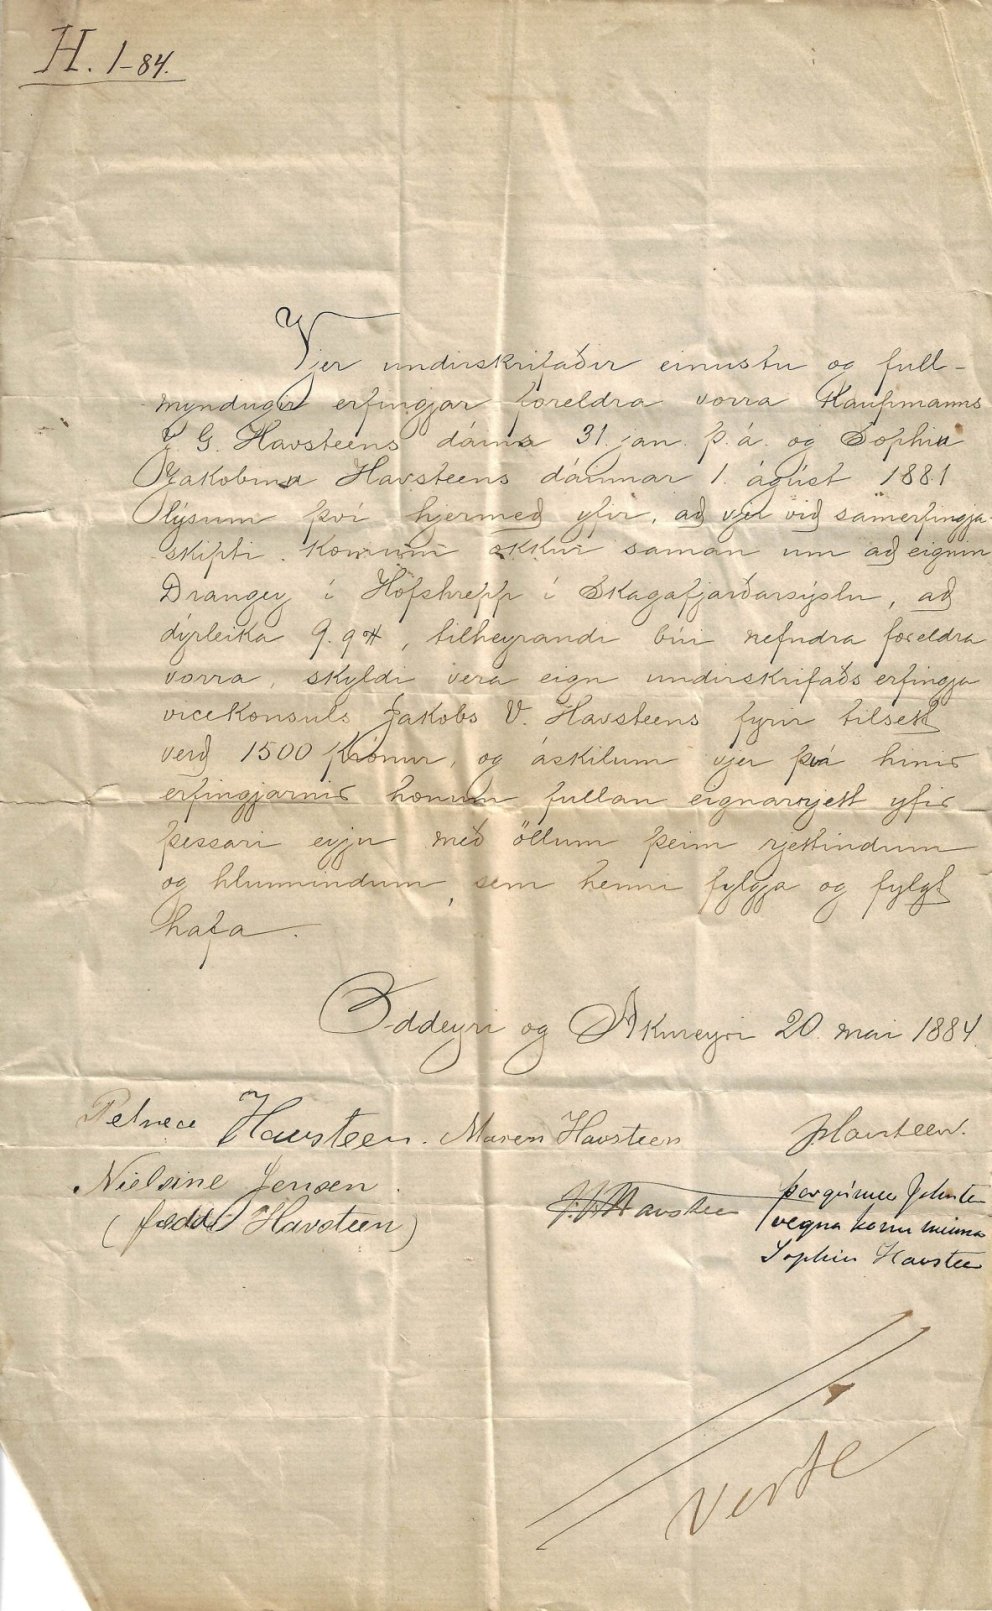 H. 1-84.
Vjer undirskrifaðir einustu og full-
myndugir erfingjar foreldra vorra Kaupmanns
J G. Havsteens dáins 31. jan. þ. á. og Sophiu
Jakobinu Havsteens dáinnar 1. ágúst 1881
lýsum því hjermeð yfir, að vjer við samerfingja-
skipti komum okkur saman um að eignin
Drangey í Hofshrepp í Skagafjarðarsýslu, að
dýrleika 9.9 H, tilheyrandi búi nefndra foreldra
vorra, skyldi vera eign undirskrifaðs erfingja
vicekonsuls Jakobs V. Havsteens fyrir tilsett
verð 1500 Krónur, og áskilum vjer þvi hinir
erfingjarnir honum fullan eignarrjett yfir
þessari eyju með öllum þeim rjettindum
og hlunnindum, sem henni fylgja og fylgt
hafa.
Oddeyri og Akureyri 20. mai 1884
Petrea Havsteen. Maren Havsteen J Havsteen.
Nielsine Jensen.
(fædd Havsteen)
J. V. Havsteen
Þorgrímur Johnsen
vegna konu minnar
Sophiu Havsteen
Verte